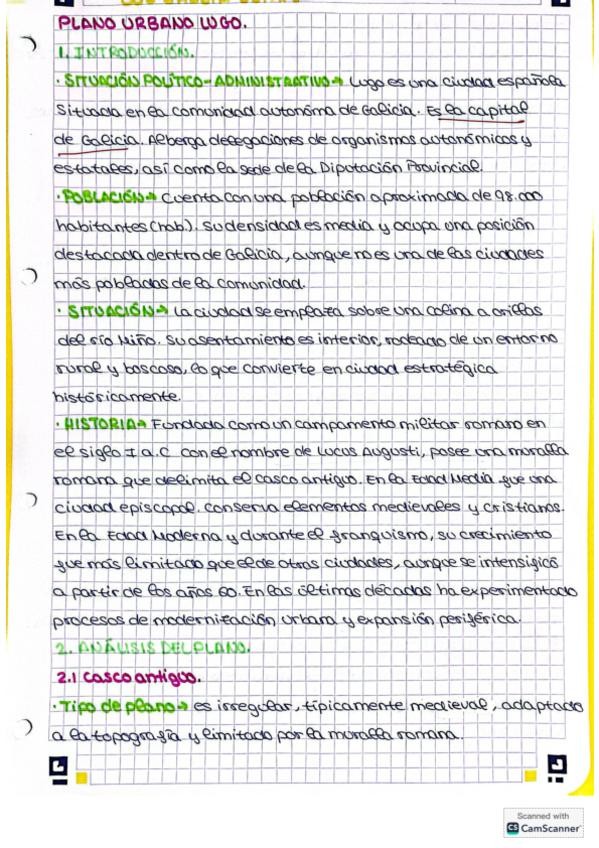 PLANO URBANO LUGO.
1. INTRODUCCIÓN.
· SITUACIÓN POLÍTICO-ADMINISTRATIVO→ Lugo es una ciudad española
situada en la comunidad autonóma de Galicia. Es la capital
de Galicia. Alberga delegaciones de organismos autonómicos y
estatales, así como la sede de la Diputación Provincial.
· POBLACIÓN→ Cuenta con una población aproximada de 98.000
habitantes (hab.). Su densidad es media y ocupa una posición
destacada dentro de Galicia, aunque no es una de las ciudades
más pobladas de la comunidad.
· SITUACIÓN→ La ciudad se emplaza sobre una colina a orillas
del río Miño. Su asentamiento es interior, rodeado de un entorno
rural y boscoso, lo que convierte en ciudad estratégica
históricamente.
· HISTORIA→ Fundada como un campamento militar romano en
el siglo I a.C con el nombre de Lucus Augusti, posee una muralla
romana que delimita el casco antiguo. En la Edad Media fue una
ciudad episcopal. conserva elementos medievales y cristianos.
En la Edad Moderna y durante el franquismo, su crecimiento
fue más limitado que el de otras ciudades, aunque se intensificó
a partir de los años 60. En las últimas décadas ha experimentado
procesos de modernización urbana y expansión periférica.
2. ANÁLISIS DEL PLANO.
2.1 Casco antiguo.
· Tipo de plano→ es irregular, típicamente medieval, adaptado
a la topografía y limitado por la muralla romana.
Scanned with
CS CamScanner